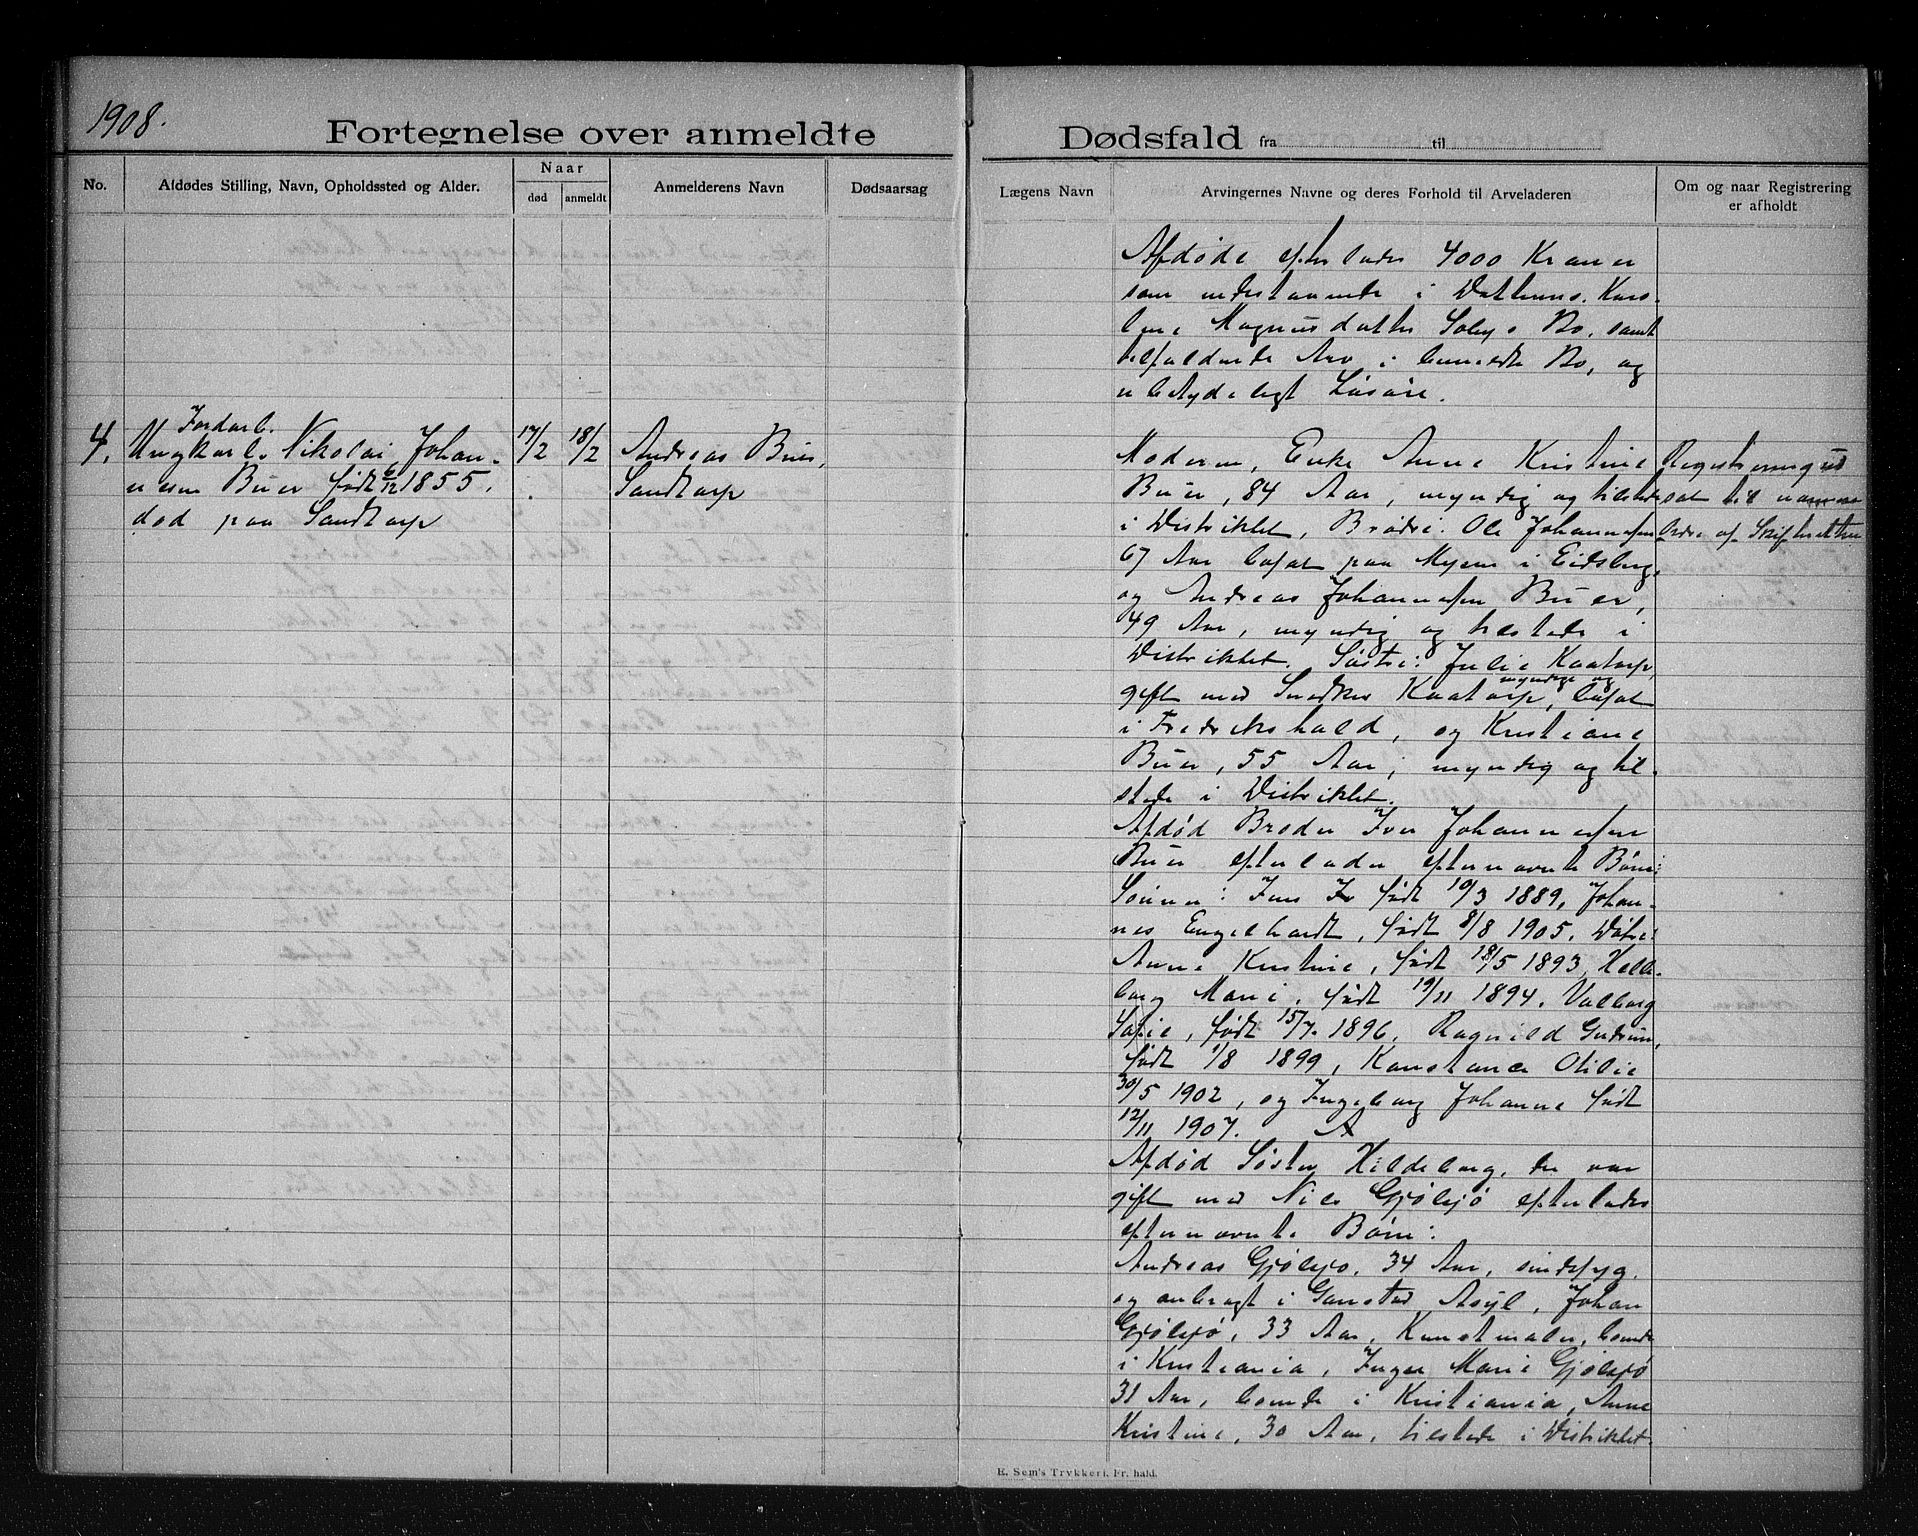 1908.
Fortegnelse over anmeldte
Dødsfald fra til
No.
Afdødes Stilling, Navn, Opholdssted og Alder.
Naar
død
anmeldt
Anmelderens Navn
Dødsaarsag
Lægens Navn
Arvingernes Navne og deres Forhold til Arveladeren
Om og naar Registrering
er afholdt
Afdøde efterlader 4000 Kroner
som indestaaende i
Magnusdatter Bo, samt
tilfaldende Arv i Bo, og
ubetydeligt Løsøre.
4.
Jordarb.
Ungkarl. Nikolai Johan-
nesen Buer født 6/12 1855.
død paa Sandtorp
17/2
18/2
Andreas Buer,
Sandtorp
Moderen, Enke Anne Kristine
Buer, 84 Aar, myndig og tilstede
i Distriktet, Brødre: Ole Johannesen
67 Aar bosat paa Mysen i Eidsberg,
og Andreas Johannesen Buer,
49 Aar, myndig og tilstede i
Distriktet. Søstre: Julie Kaatorp,
myndige og
gift med Snedker Kaatorp, bosat
i Fredrikshald, og Kristiane
Buer, 55 Aar, myndig og til-
stede i Distriktet.
Afdød Broder Iver Johannesen
Buer efterlader efternævnte Børn:
Sønner: Jens født 10/3 1889, Johan-
nes Engelhardt, født 8/8 1905. Døtre:
Anne Kristine, født 18/5 1893, Hilde-
borg Marie, født 19/11 1894. Valborg
Sofie, født 15/7. 1896, Ragnild Gudrun,
født 1/8 1899, Konstance Otilie
30/5 1902, og Ingeborg Johanne født
12/11 1907.
Afdød Søster Hildeborg, der var
gift med Nils Gjølsjø efterlader
efternævnte Børn:
Andreas Gjølsjø, 34 Aar, sindssyg,
og anbragt i Gaustad Asyl, Johan
Gjølsjø, 33 Aar, Kunstmaler, boende
i Kristiania, Inger Marie Gjølsjø
31 Aar, boende i Kristiania, Anne
Kristine, 30 Aar, tilstede i Distriktet.
Registrering ud
sat til nærmere
Ordre af Skifteretten
E. Sem's Trykkeri, Fr. hald.